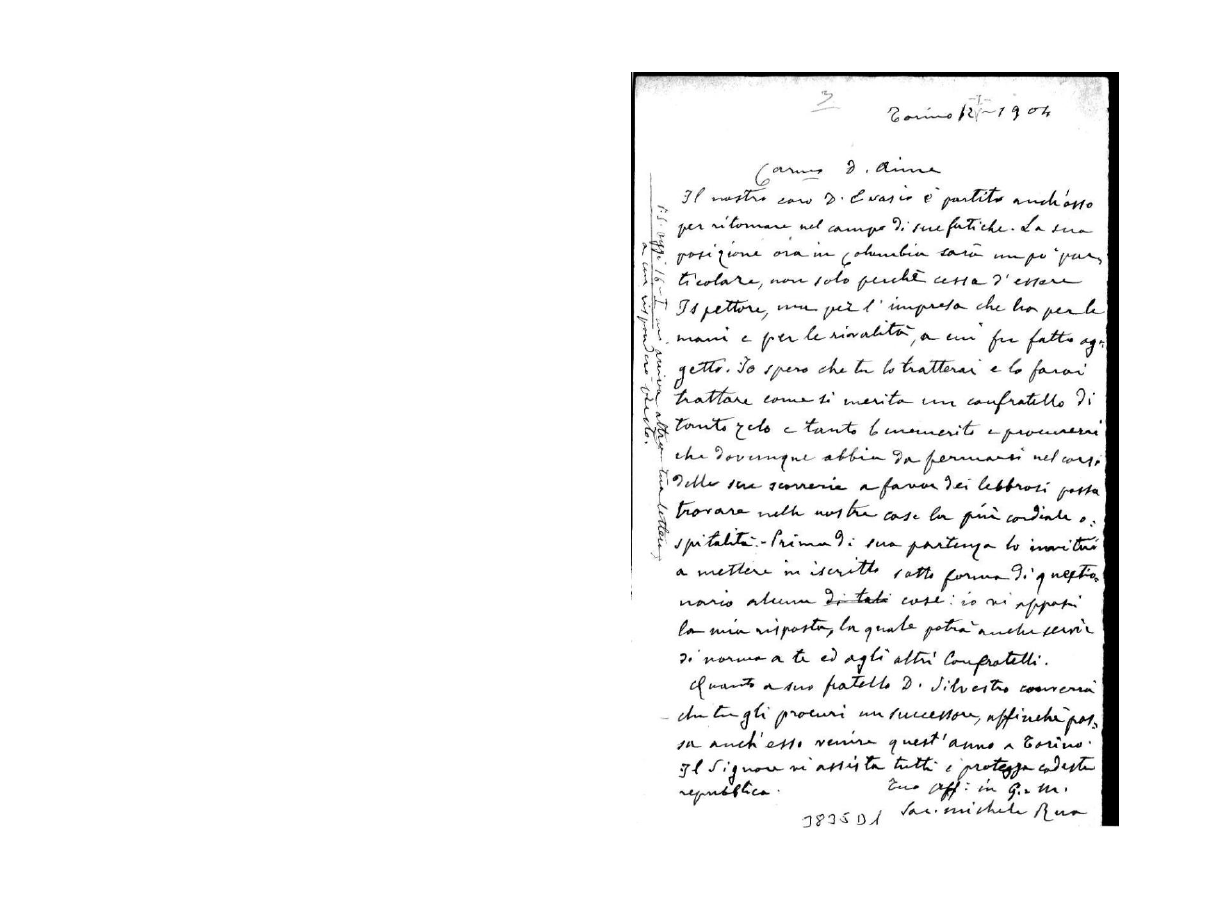 3
Torino 12-1-1904
Carmo D. Aime
Il nostro caro D. Evasio è partito anch'esso
per ritornare nel campo di sue fatiche. La sua
posizione ora in Columbia sarà un po' par-
ticolare, non solo perchè cessa d'essere
Ispettore, ma per l'impresa che ha per le
mani e per le rivalità, a cui fu fatto og-
getto. Io spero che tu lo tratterai e lo farai
trattare come si merita un confratello di
tanto zelo e tanto benemerito e procurerai
che dovunque abbia da fermarsi nel corso
delle sue scorrerie a favor dei lebbrosi possa
trovare nelle nostre case la più cordiale o-
spitalità. - Prima di sua partenza lo invitai
a mettere in iscritto sotto forma di questio-
nario alcune di tali cose: io vi apposi
la mia risposta, la quale potrà anche servir
di norma a te ed agli altri Confratelli.
Quanto a suo fratello D. Silvestro converrà
che tu gli procuri un successore, affinchè pos-
sa anch'esso venire quest'anno a Torino.
Il Signore vi assista tutti e protegga codesta
repubblica.
Tuo aff: in G. e M.
Sac. Michele Rua
3835 D1
P.S. oggi 16-I mi arriva altra tua lettera,
a cui risponderò presto.